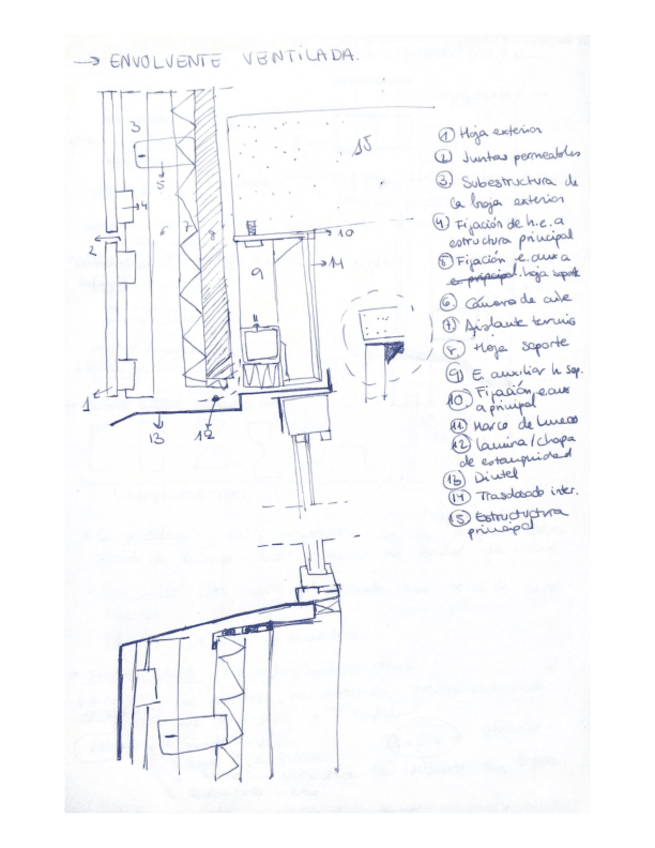 → ENVOLVENTE VENTILADA.
3
15
5
4
2
6
7
8
9
10
14
1
13
12
① Hoja exterior
② Juntas permeables
③ Subestructura de
la hoja exterior
④ Fijación de h.e. a
estructura principal
⑤ Fijación e. aux a
hoja soporte
⑥ Cámara de aire
⑦ Aislante termico
⑧ Hoja soporte
⑨ E. auxiliar h sop.
⑩ Fijación e.aux
a principal
⑪ Marco de hueco
⑫ Lamina/chapa
de estanquidad
⑬ Dintel
⑭ Trasdosado inter.
⑮ Estructuctura
principal